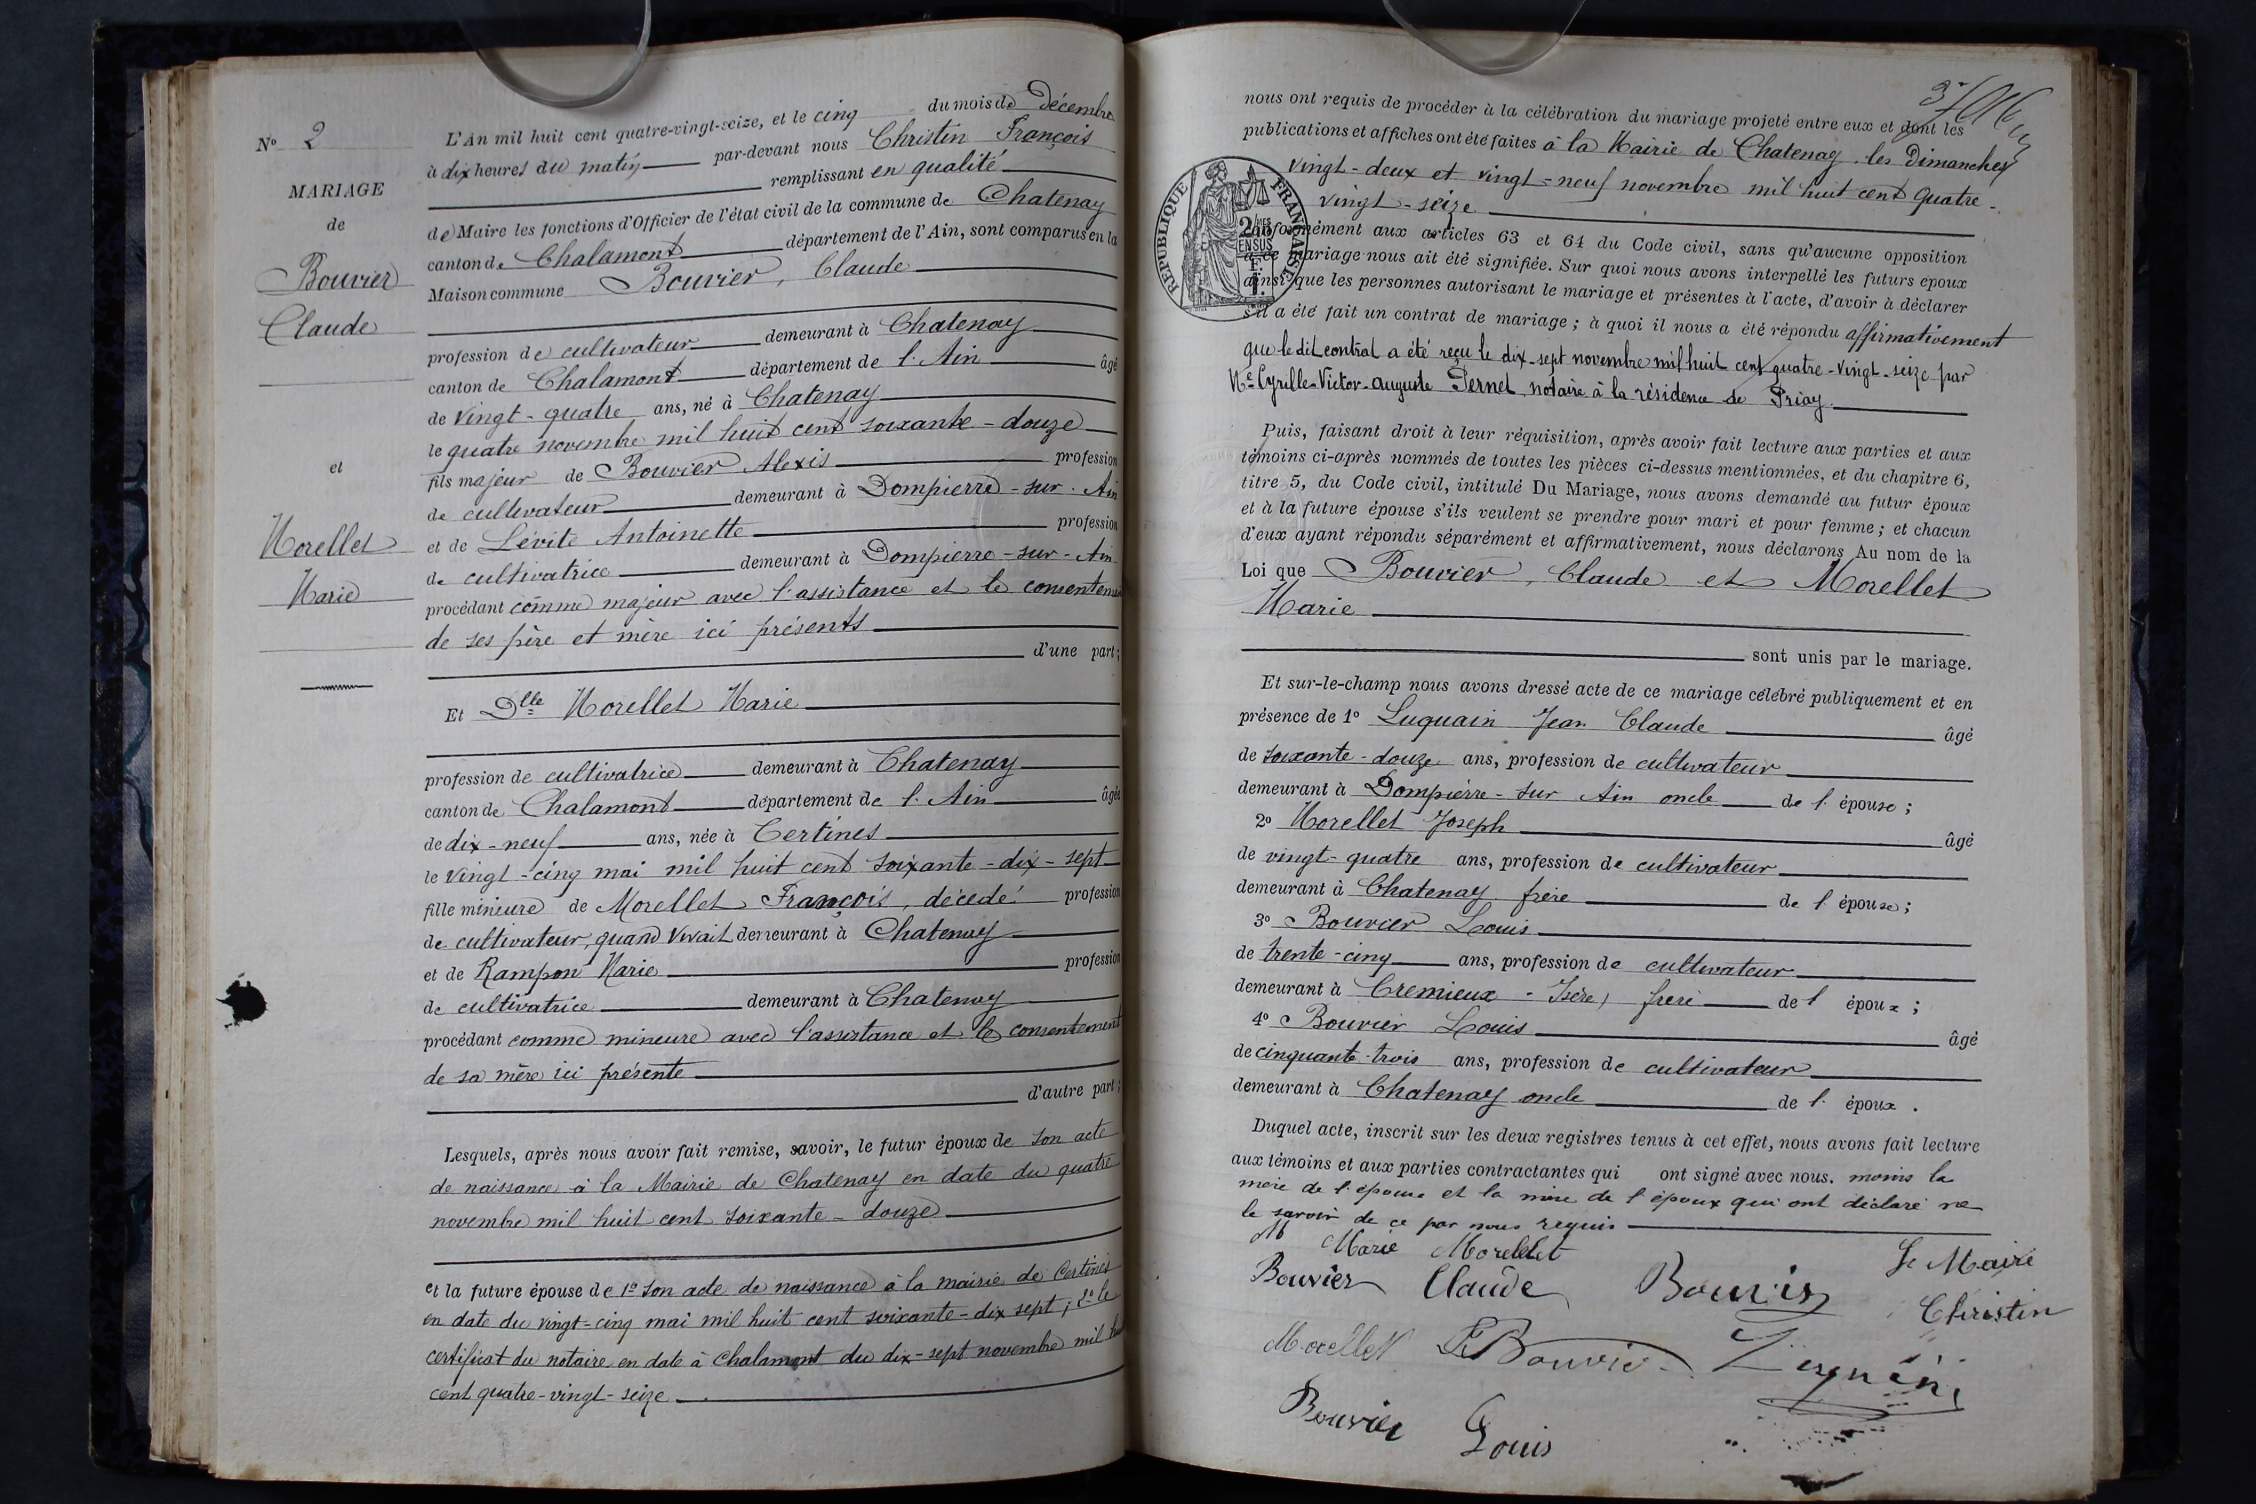 N° 2
MARIAGE
de
Bouvier
Claude
et
Morellet
Marie
L'An mil huit cent quatre-vingt-seize, et le cinq du mois de Décembre
à dix heures du matin par-devant nous Christin François
remplissant en qualité
de Maire les fonctions d'Officier de l'état civil de la commune de Chatenay
canton de Chalamont département de l'Ain, sont comparus en la
Maison commune Bouvier, Claude
profession de cultivateur demeurant à Chatenay
canton de Chalamont département de l'Ain âgé
de vingt-quatre ans, né à Chatenay
le quatre novembre mil huit cent soixante-douze
fils majeur de Bouvier Alexis profession
de cultivateur demeurant à Dompierre-sur-Ain
et de Lévite Antoinette profession
de cultivatrice demeurant à Dompierre-sur-Ain
procédant comme majeur avec l'assistance et le consentement
de ses père et mère ici présents
d'une part;
Et Dlle Morellet Marie
profession de cultivatrice demeurant à Chatenay
canton de Chalamont département de l'Ain âgée
de dix-neuf ans, née à Certines
le vingt-cinq mai mil huit cent soixante-dix-sept
fille mineure de Morellet François, décédé profession
de cultivateur, quand vivait demeurant à Chatenay
et de Rampon Marie profession
de cultivatrice demeurant à Chatenay
procédant comme mineure avec l'assistance et le consentement
de sa mère ici présente
d'autre part;
Lesquels, après nous avoir fait remise, savoir, le futur époux de son acte
de naissance à la Mairie de Chatenay en date du quatre
novembre mil huit cent soixante-douze
et la future épouse de 1° son acte de naissance à la mairie de Certines
en date du vingt-cinq mai mil huit cent soixante-dix sept; 2° le
certificat du notaire en date à Chalamont du dix-sept novembre mil huit
cent quatre-vingt-seize
nous ont requis de procéder à la célébration du mariage projeté entre eux et dont les
publications et affiches ont été faites à la Mairie de Chatenay les Dimanches
vingt-deux et vingt-neuf novembre mil huit cent quatre-
vingt-seize
REPUBLIQUE FRANÇAISE
Conformément aux articles 63 et 64 du Code civil, sans qu'aucune opposition
à ce mariage nous ait été signifiée. Sur quoi nous avons interpellé les futurs époux
ainsi que les personnes autorisant le mariage et présentes à l'acte, d'avoir à déclarer
s'il a été fait un contrat de mariage; à quoi il nous a été répondu affirmativement
que le dit contrat a été reçu le dix-sept novembre mil huit cent quatre-vingt-seize par
Me Cyrille-Victor-Auguste Pernet, notaire à la résidence de Priay.
Puis, faisant droit à leur réquisition, après avoir fait lecture aux parties et aux
témoins ci-après nommés de toutes les pièces ci-dessus mentionnées, et du chapitre 6,
titre 5, du Code civil, intitulé Du Mariage, nous avons demandé au futur époux
et à la future épouse s'ils veulent se prendre pour mari et pour femme; et chacun
d'eux ayant répondu séparément et affirmativement, nous déclarons Au nom de la
Loi que Bouvier, Claude et Morellet
Marie
sont unis par le mariage.
Et sur-le-champ nous avons dressé acte de ce mariage célébré publiquement et en
présence de 1° Luquain Jean Claude âgé
de soixante-douze ans, profession de cultivateur
demeurant à Dompierre-sur Ain oncle de l'épouse;
2° Morellet Joseph âgé
de vingt-quatre ans, profession de cultivateur
demeurant à Chatenay frère de l'épouse;
3° Bouvier Louis
de trente-cinq ans, profession de cultivateur
demeurant à Cremieux - Isère, frère de l époux;
4° Bouvier Louis âgé
de cinquante-trois ans, profession de cultivateur
demeurant à Chatenay oncle de l'époux.
Duquel acte, inscrit sur les deux registres tenus à cet effet, nous avons fait lecture
aux témoins et aux parties contractantes qui ont signé avec nous. moins la
mère de l'épouse et la mère de l'époux qui ont déclaré ne
le savoir de ce par nous requis
M Marie Morellet Le Maire
Bouvier Claude Bouvier Christin
Morellet Bouvier
Bouvier Louis